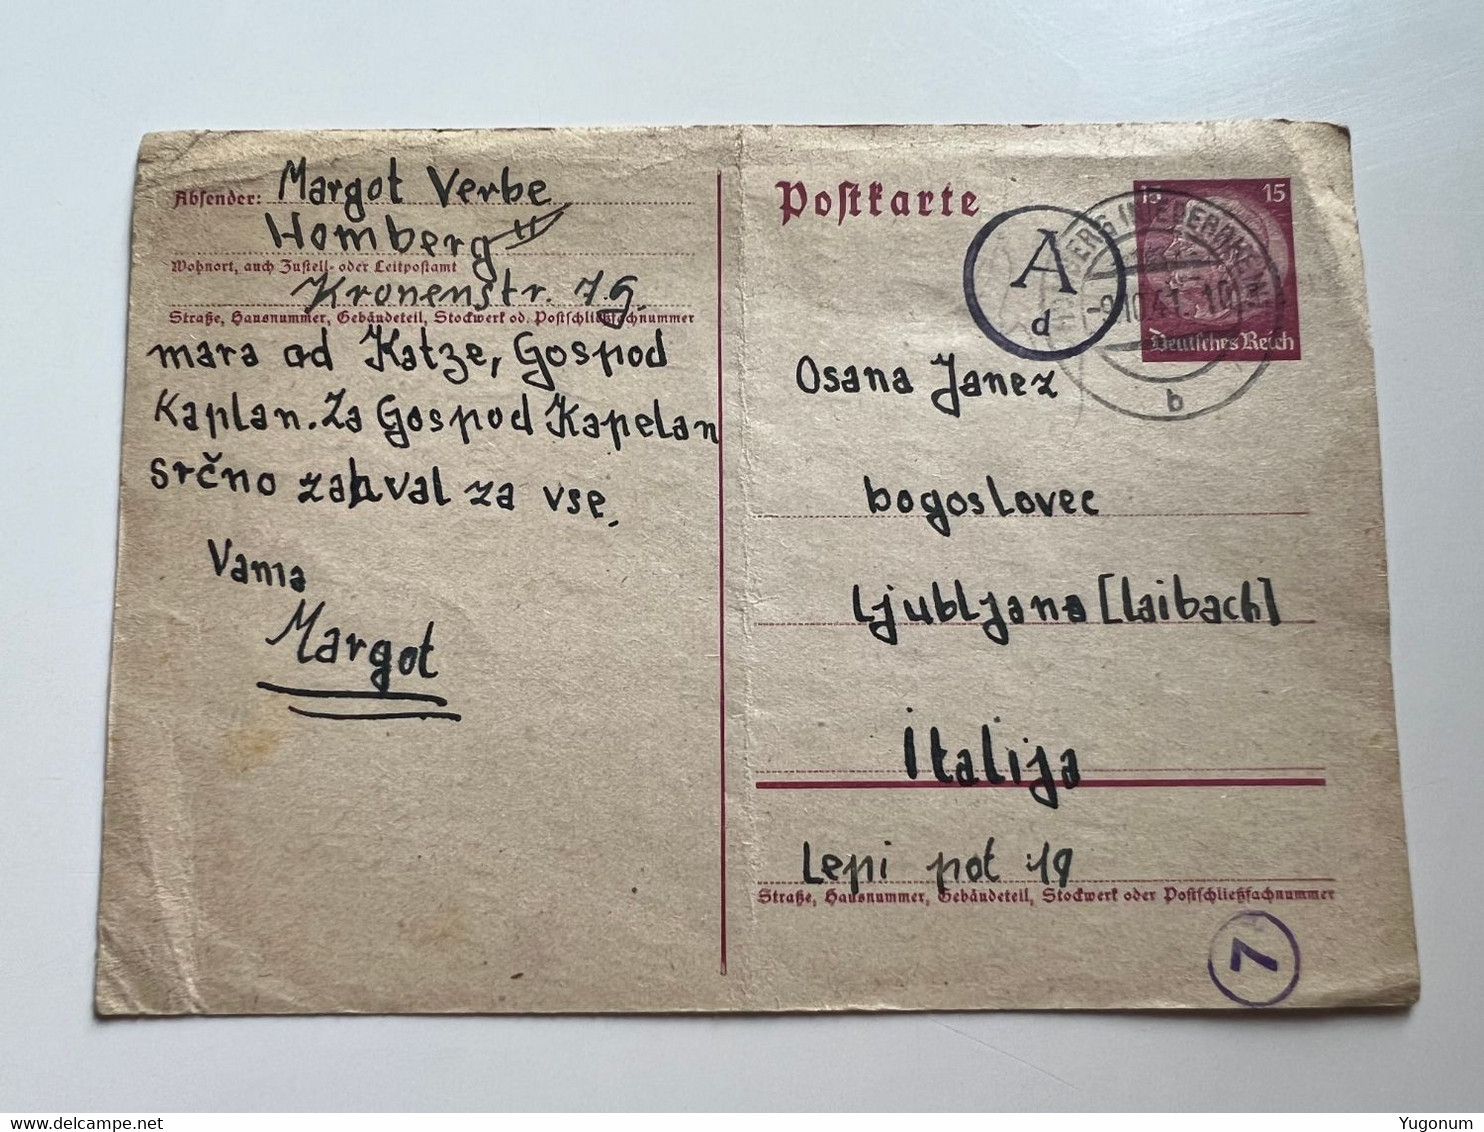 Absender: Margot Verbe
Homberg
Wohnort, auch Zustell- oder Leitpostamt
Kronenstr. 79.
Straße, Hausnummer, Gebäudeteil, Stockwerk od. Postschließfachnummer
mara od Katze, Gospod
Kaplan. Za Gospod Kapelan
srčno zahval za vse.
Vama
Margot
Postkarte
15 15
Deutsches Reich
A
d
BERG (NIEDERRHEIN)
10.41. 10
b
Osana Janez
bogoslovec
Ljubljana [Laibach]
Italija
Lepi pot 19
Straße, Hausnummer, Gebäudeteil, Stockwerk oder Postschließfachnummer
7
Yugonum